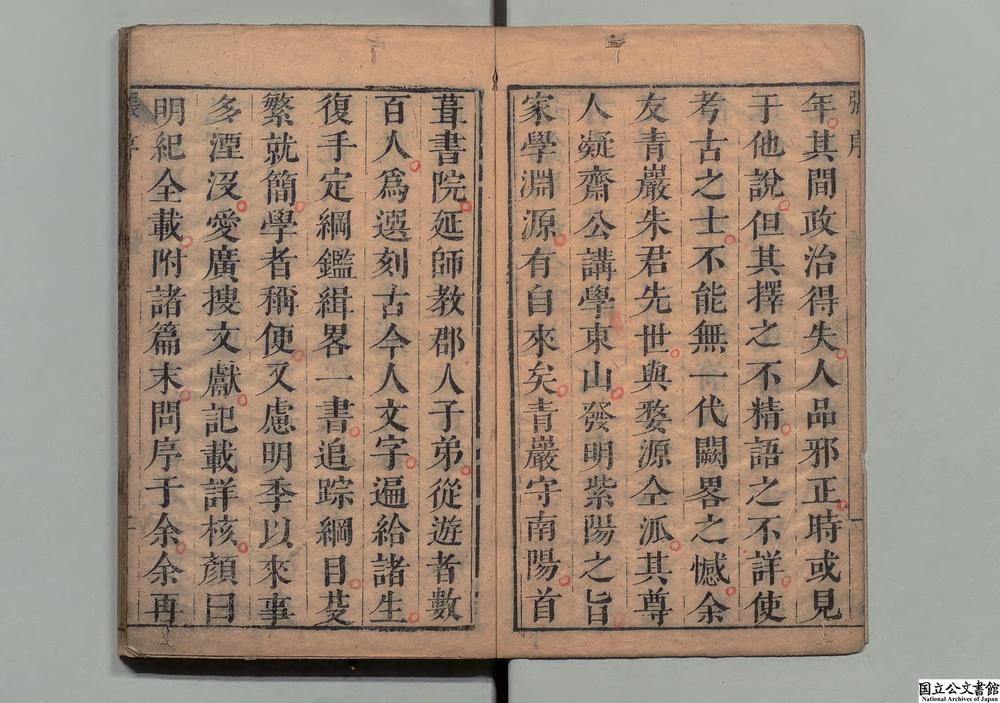 張序
年其間政治得失人品邪正時或見
于他說但其擇之不精語之不詳使
考古之士不能無一代闕畧之憾余
友青巖朱君先世與婺源仝派其尊
人凝齋公講學東山發明紫陽之旨
家學淵源有自來矣青巖守南陽首
葺書院延師教郡人子弟從遊者數
百人爲選刻古今人文字遍給諸生
復手定綱鑑緝畧一書追踪綱目芟
繁就簡學者稱便又慮明季以來事
多湮沒爰廣搜文獻記載詳核顏曰
明紀全載附諸篇末問序于余余再
張序
国立公文書館
National Archives of Japan